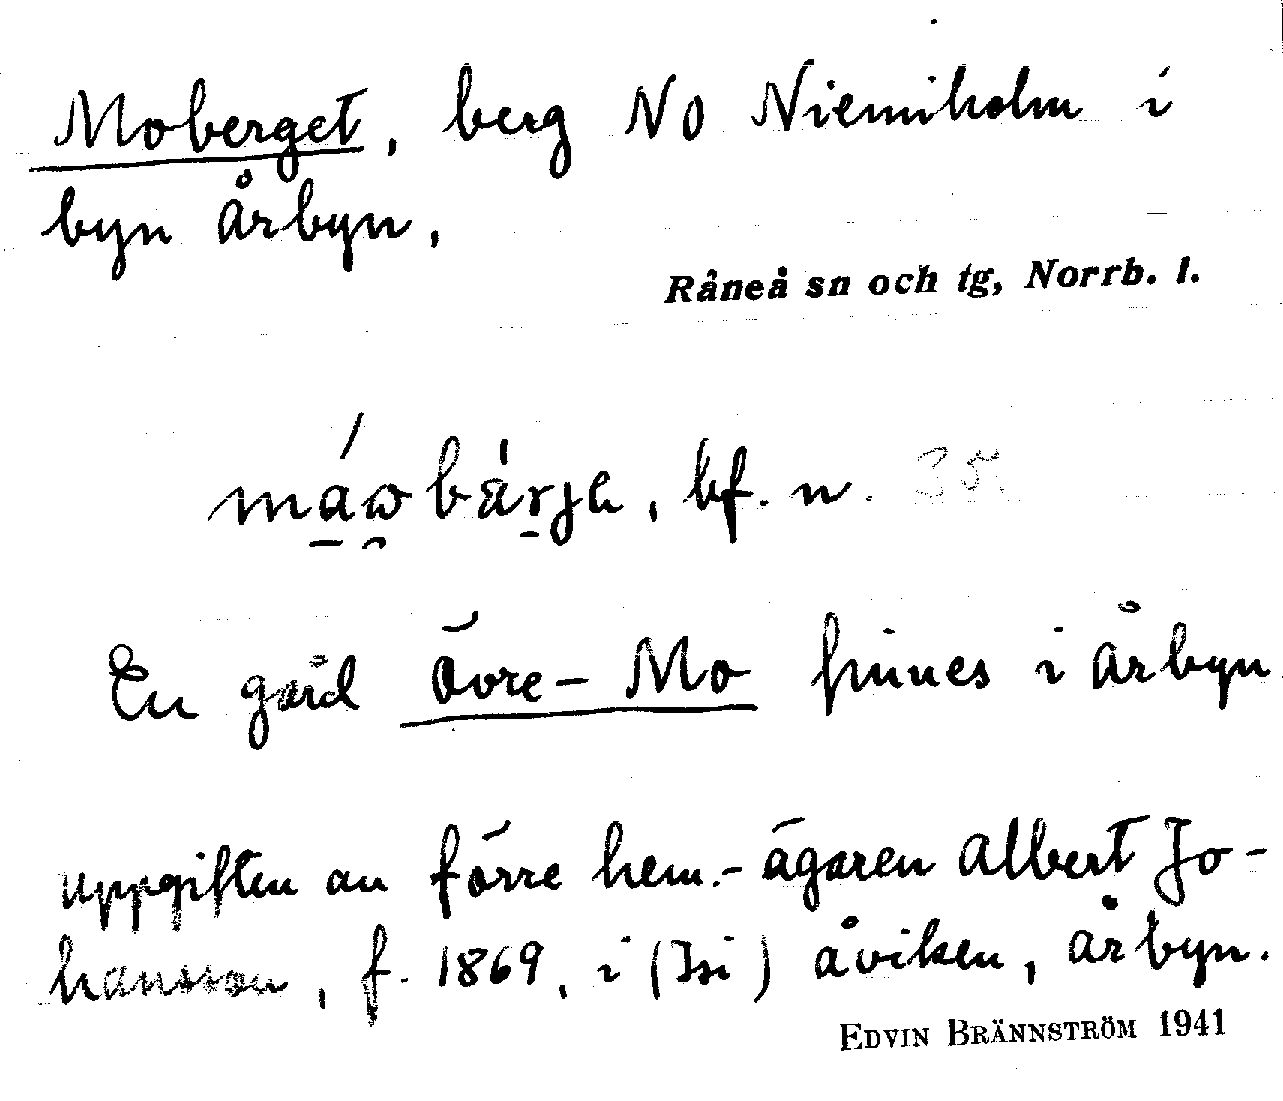 Moberget, berg NO Niemiholm i
byn Årbyn.
Råneå sn och tg, Norrb. l.
bf. n. 35
En gård Övre-Mo finnes i Årbyn
uppgiften av förre hem.-ägaren Albert Jo-
hansson, f. 1869, i (Isi) Åviken, Årbyn.
EDVIN BRÄNNSTRÖM 1941